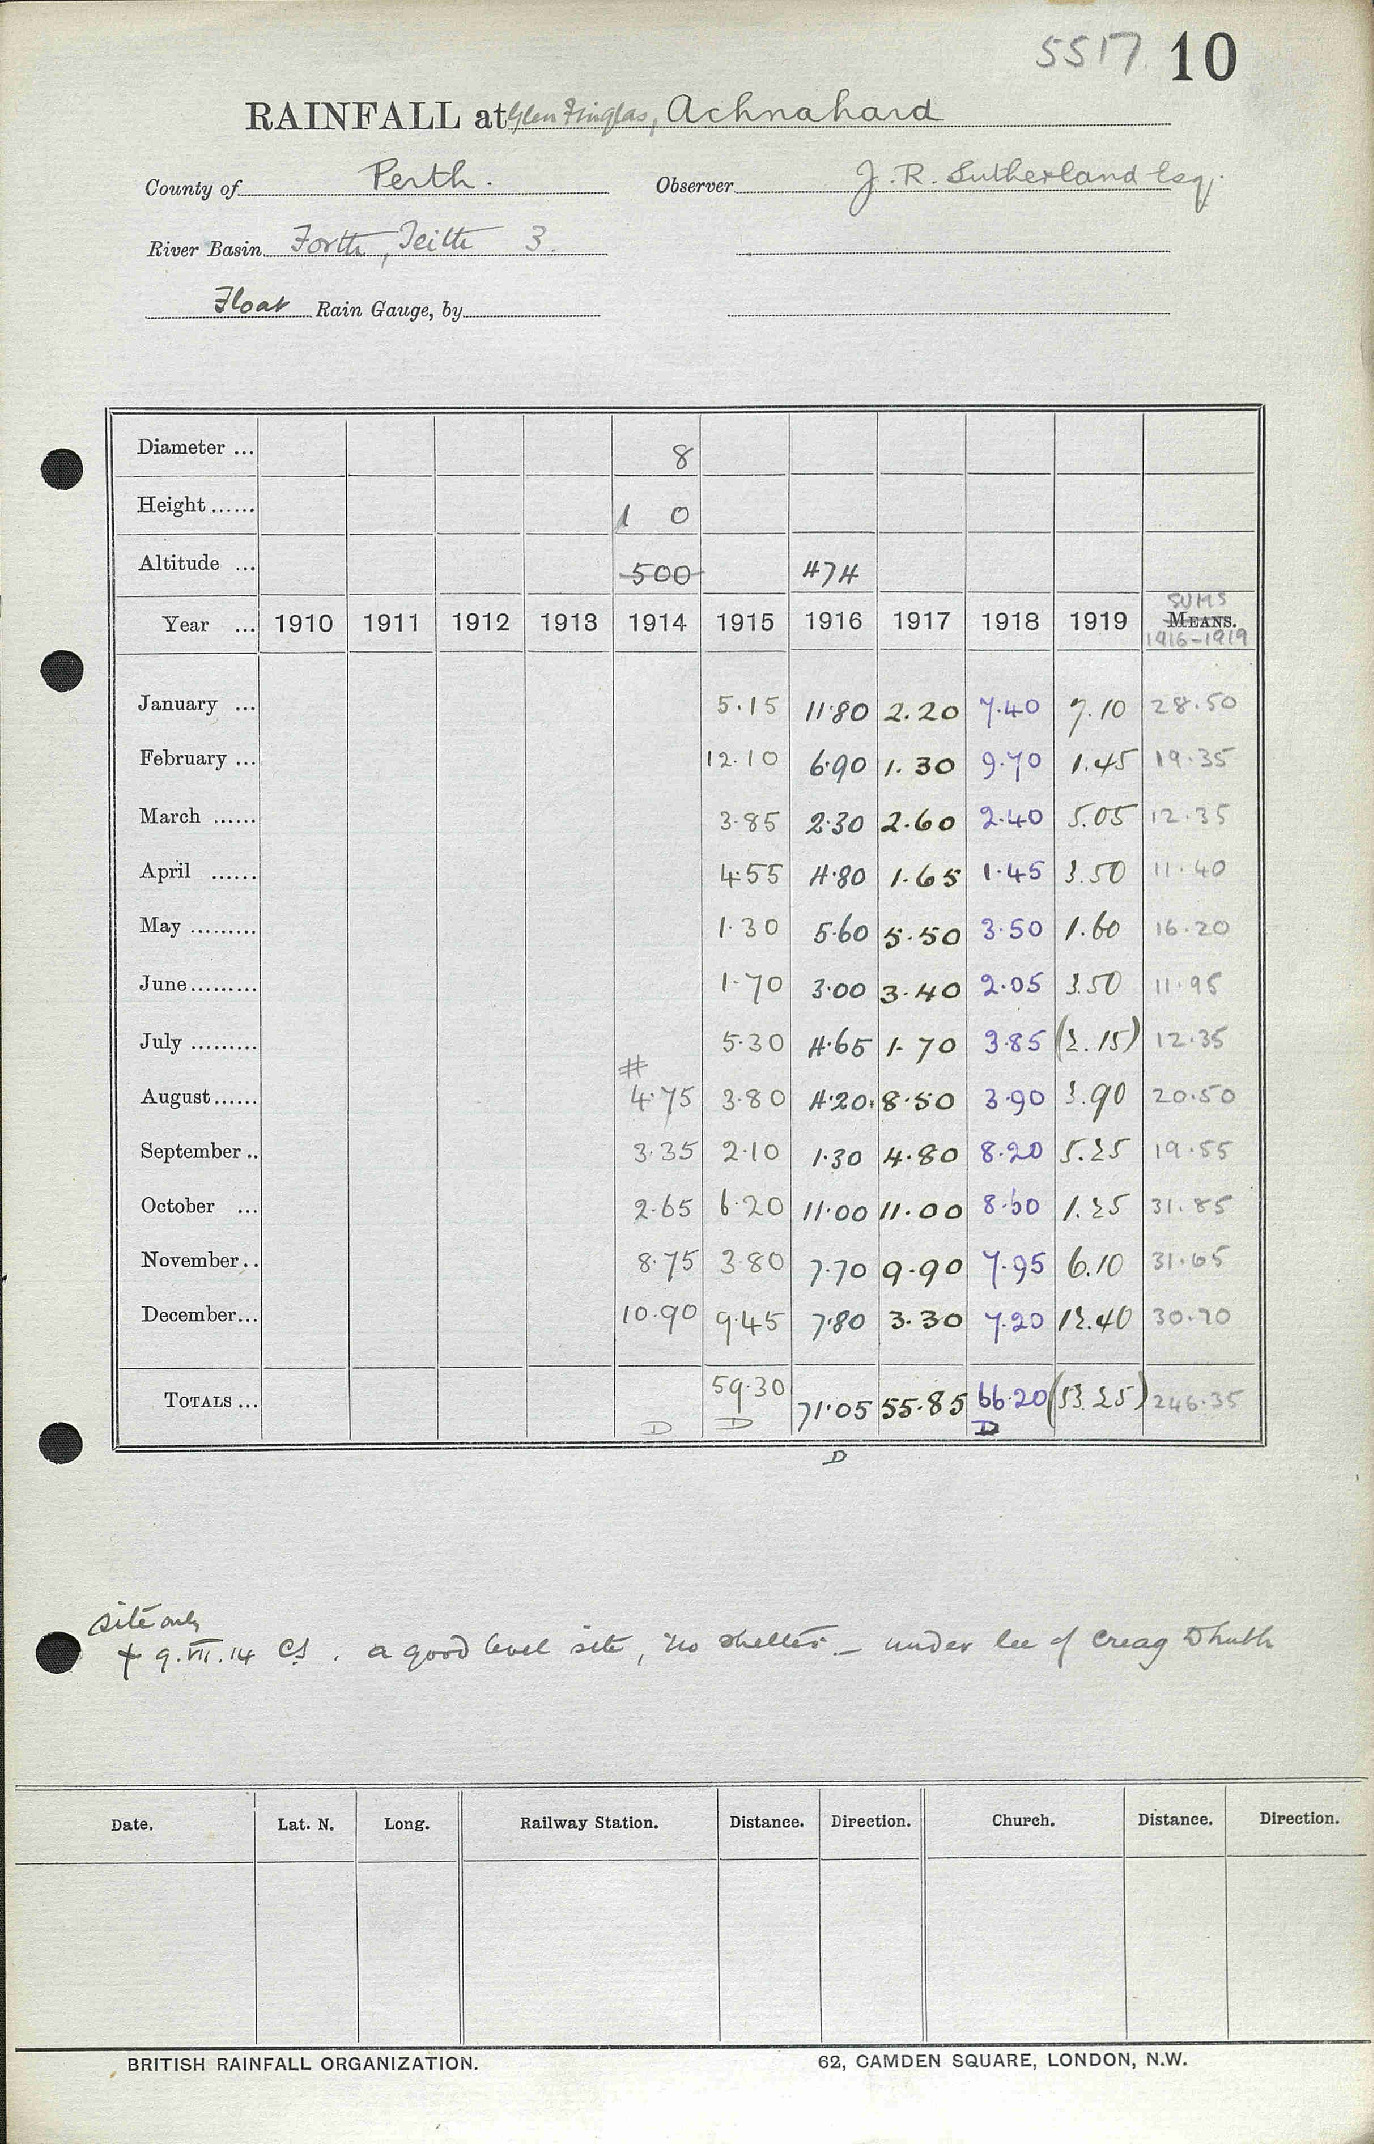 5517 10
RAINFALL at Glen Finglas, Achnahard
County of Perth. Observer J. R. Sutherland Esq.
River Basin Forth, Teith 3.
Float Rain Gauge, by
Diameter ... 8
Height ...... 1 0
Altitude ... 500 474
SUMS
Year ... 1910 1911 1912 1913 1914 1915 1916 1917 1918 1919 MEANS.
1916-1919
January ... 5.15 11.80 2.20 7.40 7.10 28.50
February ... 12.10 6.90 1.30 9.70 1.45 19.35
March ...... 3.85 2.30 2.60 2.40 5.05 12.35
April ...... 4.55 4.80 1.65 1.45 3.50 11.40
May ......... 1.30 5.60 5.50 3.50 1.60 16.20
June ......... 1.70 3.00 3.40 2.05 3.50 11.95
July ......... 5.30 4.65 1.70 3.85 (2.15) 12.35
#
August ...... 4.75 3.80 4.20 8.50 3.90 3.90 20.50
September .. 3.35 2.10 1.30 4.80 8.20 5.25 19.55
October ... 2.65 6.20 11.00 11.00 8.60 1.25 31.85
November .. 8.75 3.80 7.70 9.90 7.95 6.10 31.65
December ... 10.90 9.45 7.80 3.30 7.20 12.40 30.70
TOTALS ... 59.30 71.05 55.85 66.20 (53.25) 246.35
D D D
D
site only
+ 9.VII.14 CS. a good level site, no shelter – under lee of Creag Dhubh
Date. Lat. N. Long. Railway Station. Distance. Direction. Church. Distance. Direction.
BRITISH RAINFALL ORGANIZATION. 62, CAMDEN SQUARE, LONDON, N.W.